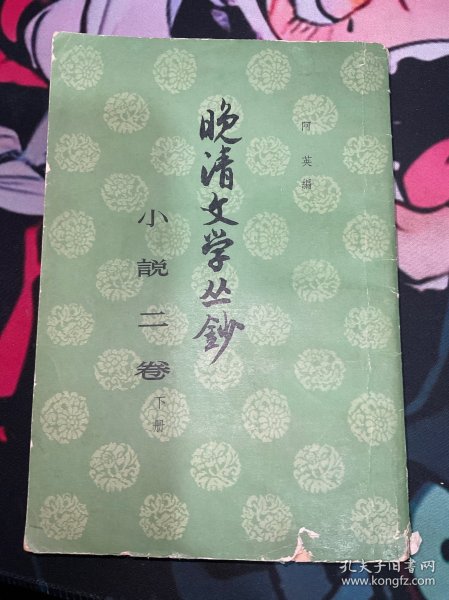 阿英編
晚清文学丛鈔
小説二卷
下册
孔夫子旧书网
www.kongfz.com